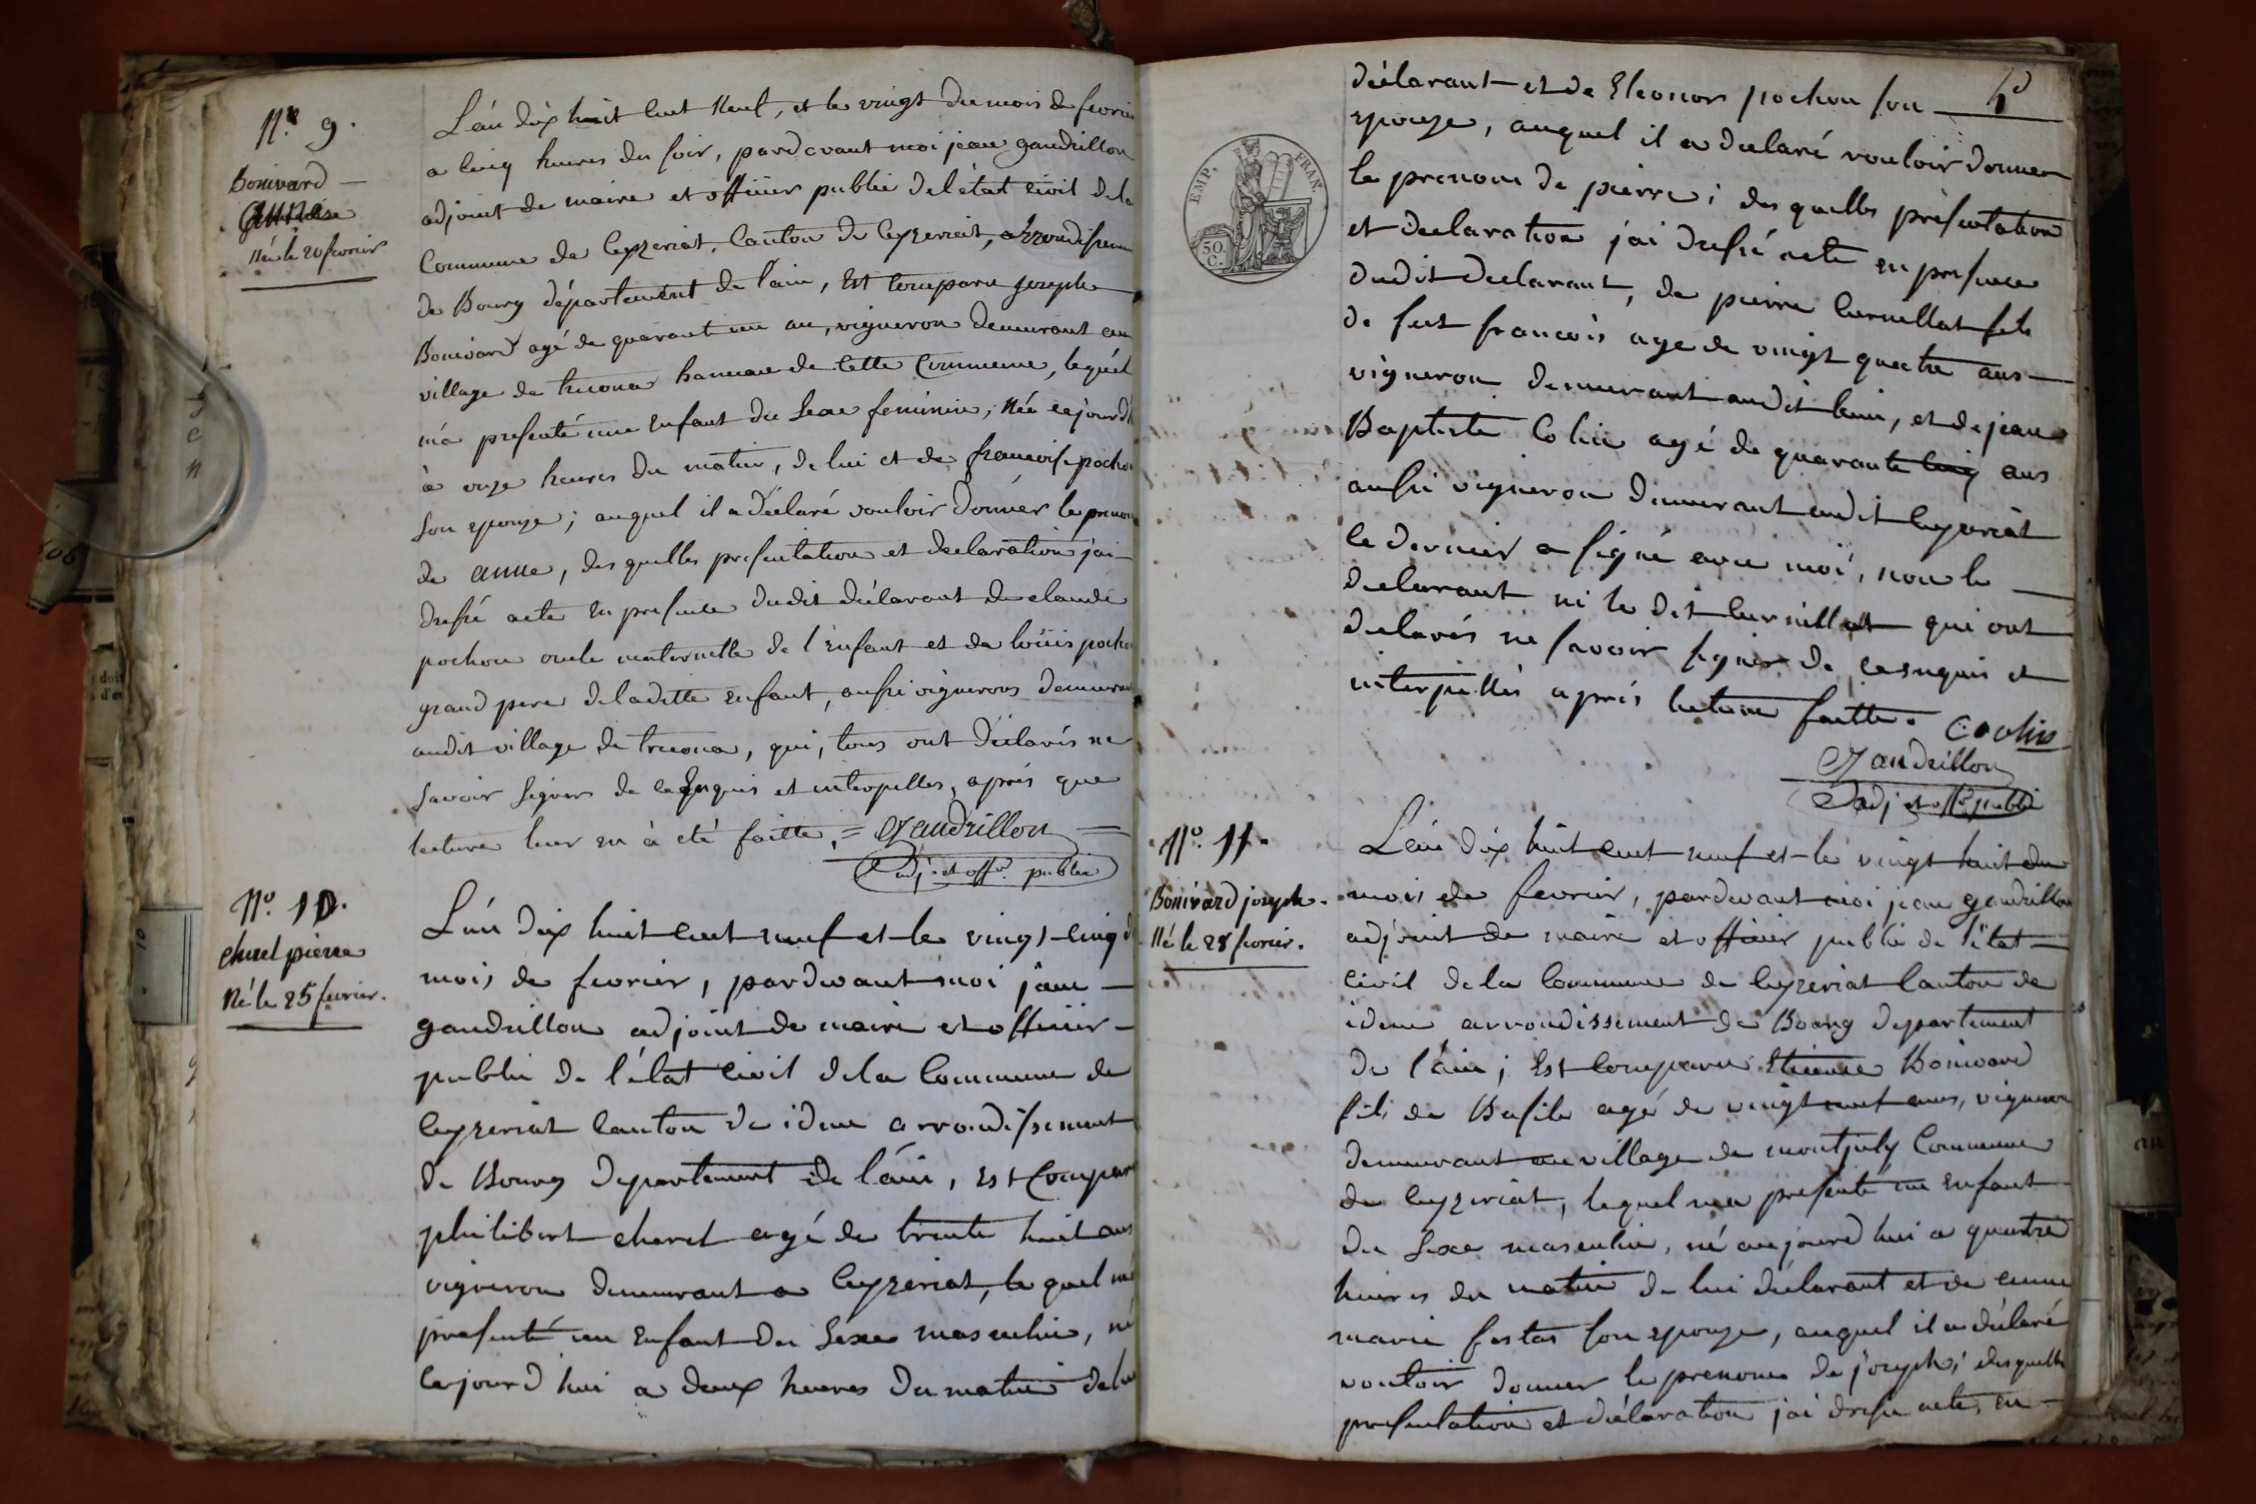 N.º 9.
Bonivard
anne
Née le 20 fevrier
L'an dix huit cent neuf, et le vingt du mois de fevrier
a cinq heures du soir, pardevant moi jean gaudrillon
adjoint de maire et officier public de l'état civil de la
Commune de Ceyzeriat, Canton de Ceyzeriat, arrondissem
de Bourg département de l'ain, Est Comparu joseph
Bonivard agé de quarant un an, vigneron demeurant au
village de treconna hameau de cette Commune, lequel
m'a presenté une enfant du Sexe feminin, Née cejourd'h
à onze heures du matin, de lui et de francoise pochon
son epouze; auquel il a déclaré vouloir donner le prenom
de anne, des quelles presentation et declaration j'ai
dressé acte en presence dudit déclarant de claude
pochon oncle maternelle de l'enfant et de loüis pochon
grand pere de ladette enfant, aussi vignerons demeurant
audit village de treconna, qui, tous ont déclarés ne
savoir signer de ce enquis et interpelles, après que
lecture leur en à eté faitte. = Gaudrillon
adj. et offr. public
N.º 10.
charel pierre
Né le 25 fevrier.
L'an dix huit cent neuf et le vingt cinq d
mois de fevrier, pardevant moi jean
gaudrillon adjoint de maire et officier
public de l'état civil de la Commune de
Ceyzeriat Canton de idem arrondissement
de Bourg departement de l'ain, est Compar
philibert charel agé de trente huit ans
vigneron demeurant a Ceyzeriat, le quel m'a
presenté un enfant du Sexe masculin, né
cejourd'hui a deux heures du matin de lui
EMP. FRAN.
50 C.
déclarant et de Eleonors pochon son
epouze, auquel il a declaré vouloir donner
le prenom de pierre; des quelles presentation
et declaration j'ai dressé acte en presence
dudit declarant, de pierre Curnillat fils
de feut francois age de vingt quatre ans
vigneron demeurant audit lieu, et de jean
Baptiste Colin agé de quarante cinq ans
aussi vigneron demeurant audit Ceyzeriat
le dernier a signé avec moi, non le
declarant ni le dit Curnillat qui ont
declarés ne savoir signer de ce enquis et
interpellés après lecture faitte. Coolin
Gaudrillon
adj et offr. public
N.º 11.
Bonivard joseph.
Né le 28 fevrier.
L'an dix huit cent neuf et le vingt huit du
mois de fevrier, pardevant moi jean gaudrillon
adjoint de maire et officier public de l'etat
civil de la Commune de Ceyzeriat Canton de
idem arrondissement de Bourg departement
de l'ain; Est Comparu Etienne Bonivard
fils de Basile agé de vingt neuf ans, vigneron
demeurant au village de montjuly Commune
de Ceyzeriat, lequel m'a presenté un enfant
du Sexe masculin, né aujourd hui a quatre
heures du matin de lui déclarant et de anne
marie son epouze, auquel il a déclaré
vouloir donner le prenom de joseph; desquelle
presentation et déclaration j'ai dressé acte, en